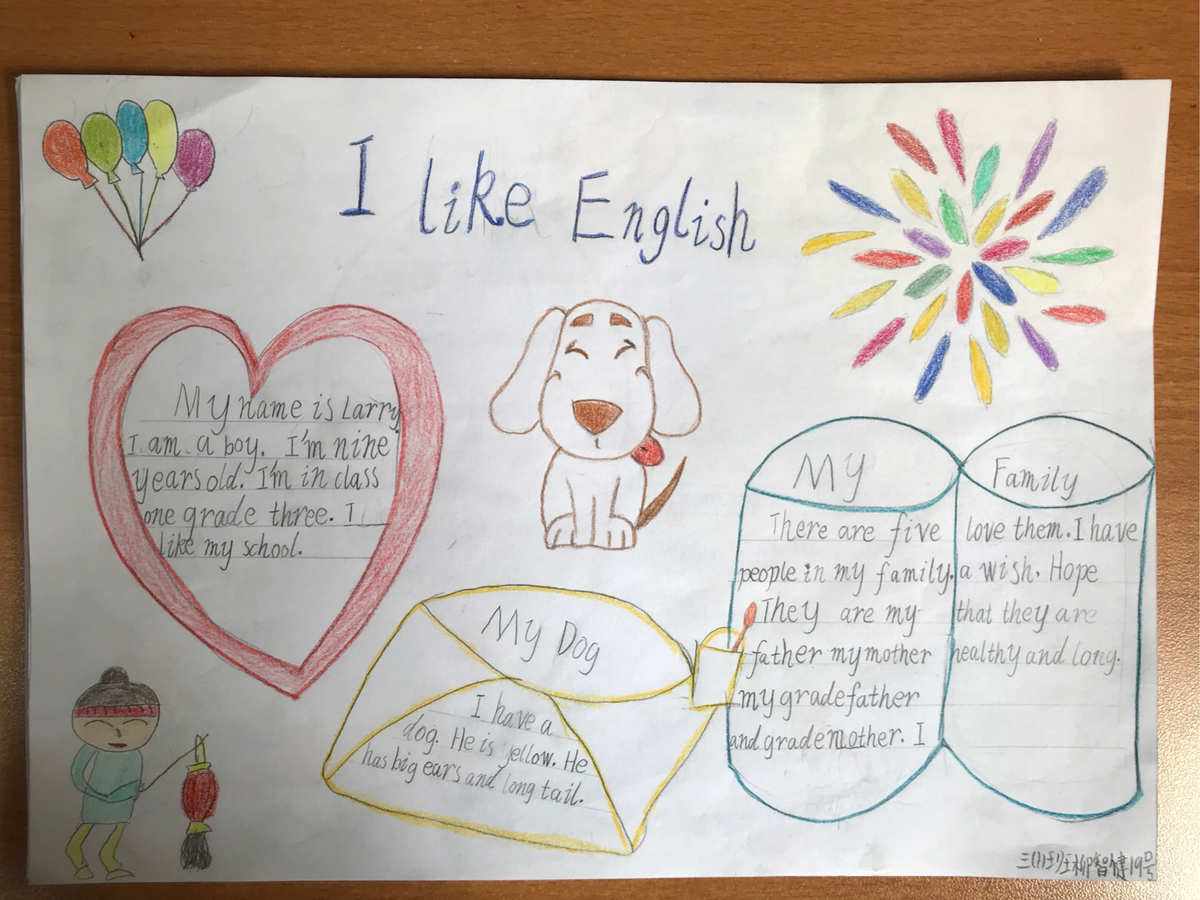 I like English
My name is Larry
I am a boy. I'm nine
years old. I'm in class
one grade three. I
like my school.
My Dog
I have a
dog. He is yellow. He
has big ears and long tail.
My Family
There are five
people in my family.
They are my
father my mother
my gradefather
and grademother. I
love them. I have
a wish. Hope
that they are
healthy and long.
三(1)班柳智健19号